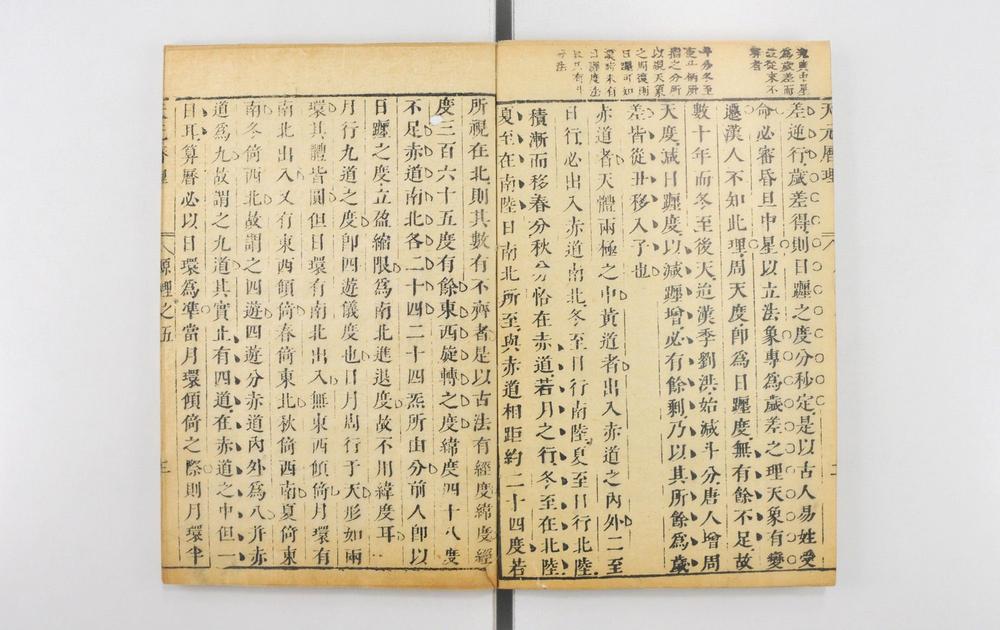 天元曆理
差逆行歲差得則日躔之度分秒定是以古人易姓受
命必審昏旦中星以立法象專為歲差之理天象有變
遷漢人不知此理周天度即為日躔度無有餘不足故
數十年而冬至後天迨漢季劉洪始減斗分唐人增周
天度減日躔度以減躔增必有餘剩乃以其所餘為歲
差皆從丑移入子也
赤道者天體兩極之中黃道者出入赤道之內外二至
日行必出入赤道南北冬至日行南陸夏至日行北陸
積漸而移春分秋分恰在赤道若月之行冬至在北陸
夏至在南陸日南北所至與赤道相距約二十四度若
所視在北則其數有不齊者是以古法有經度緯度經
度三百六十五度有餘東西旋轉之度緯度四十八度
不足赤道南北各二十四二十四炁所由分前人即以
日躔之度立盈縮限為南北進退度故不用緯度耳
月行九道之度即四遊儀度也日月周行于天形如兩
環其體皆圓但日環有南北出入無東西傾倚月環有
南北出入又有東西傾倚春倚東北秋倚西南夏倚東
南冬倚西北故謂之四遊四遊分赤道內外為八并赤
道為九故謂之九道其實止有四道在赤道之中但一
日耳算曆必以日環為準當月環傾倚之際則月環半
原理之五
三